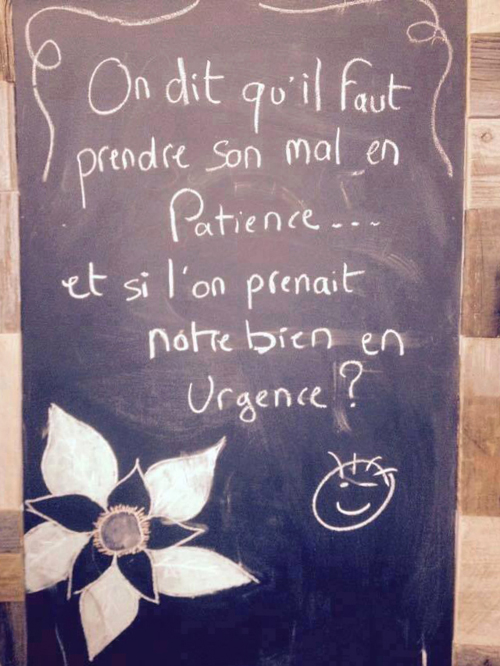 On dit qu'il faut
prendre son mal en
Patience....
et si l'on prenait
notre bien en
Urgence ?